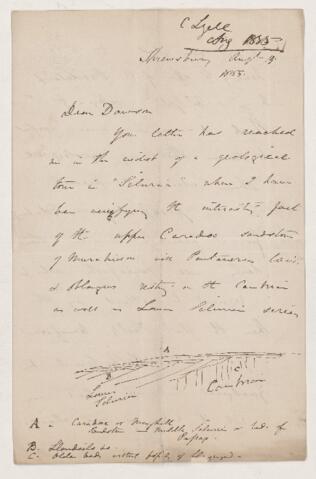 C Lyell
Aug 1855
Shrewsbury Augt 9
1855
Dear Dawson
Your letter has reached
me in the midst of a geological
tour in "Siluria" where I have
been verifying the interesting fact
of the upper Caradoc sandstone
of Murchison with Pentamerus laevis
& oblongus resting on the Cambrian
as well as Lower Silurian series
A
B
C
Lower
Silurian
Cambrian
A - Caradoc or Mayhill
Sandstone - Middle Silurian or
B. Llandeilo
C. Older beds